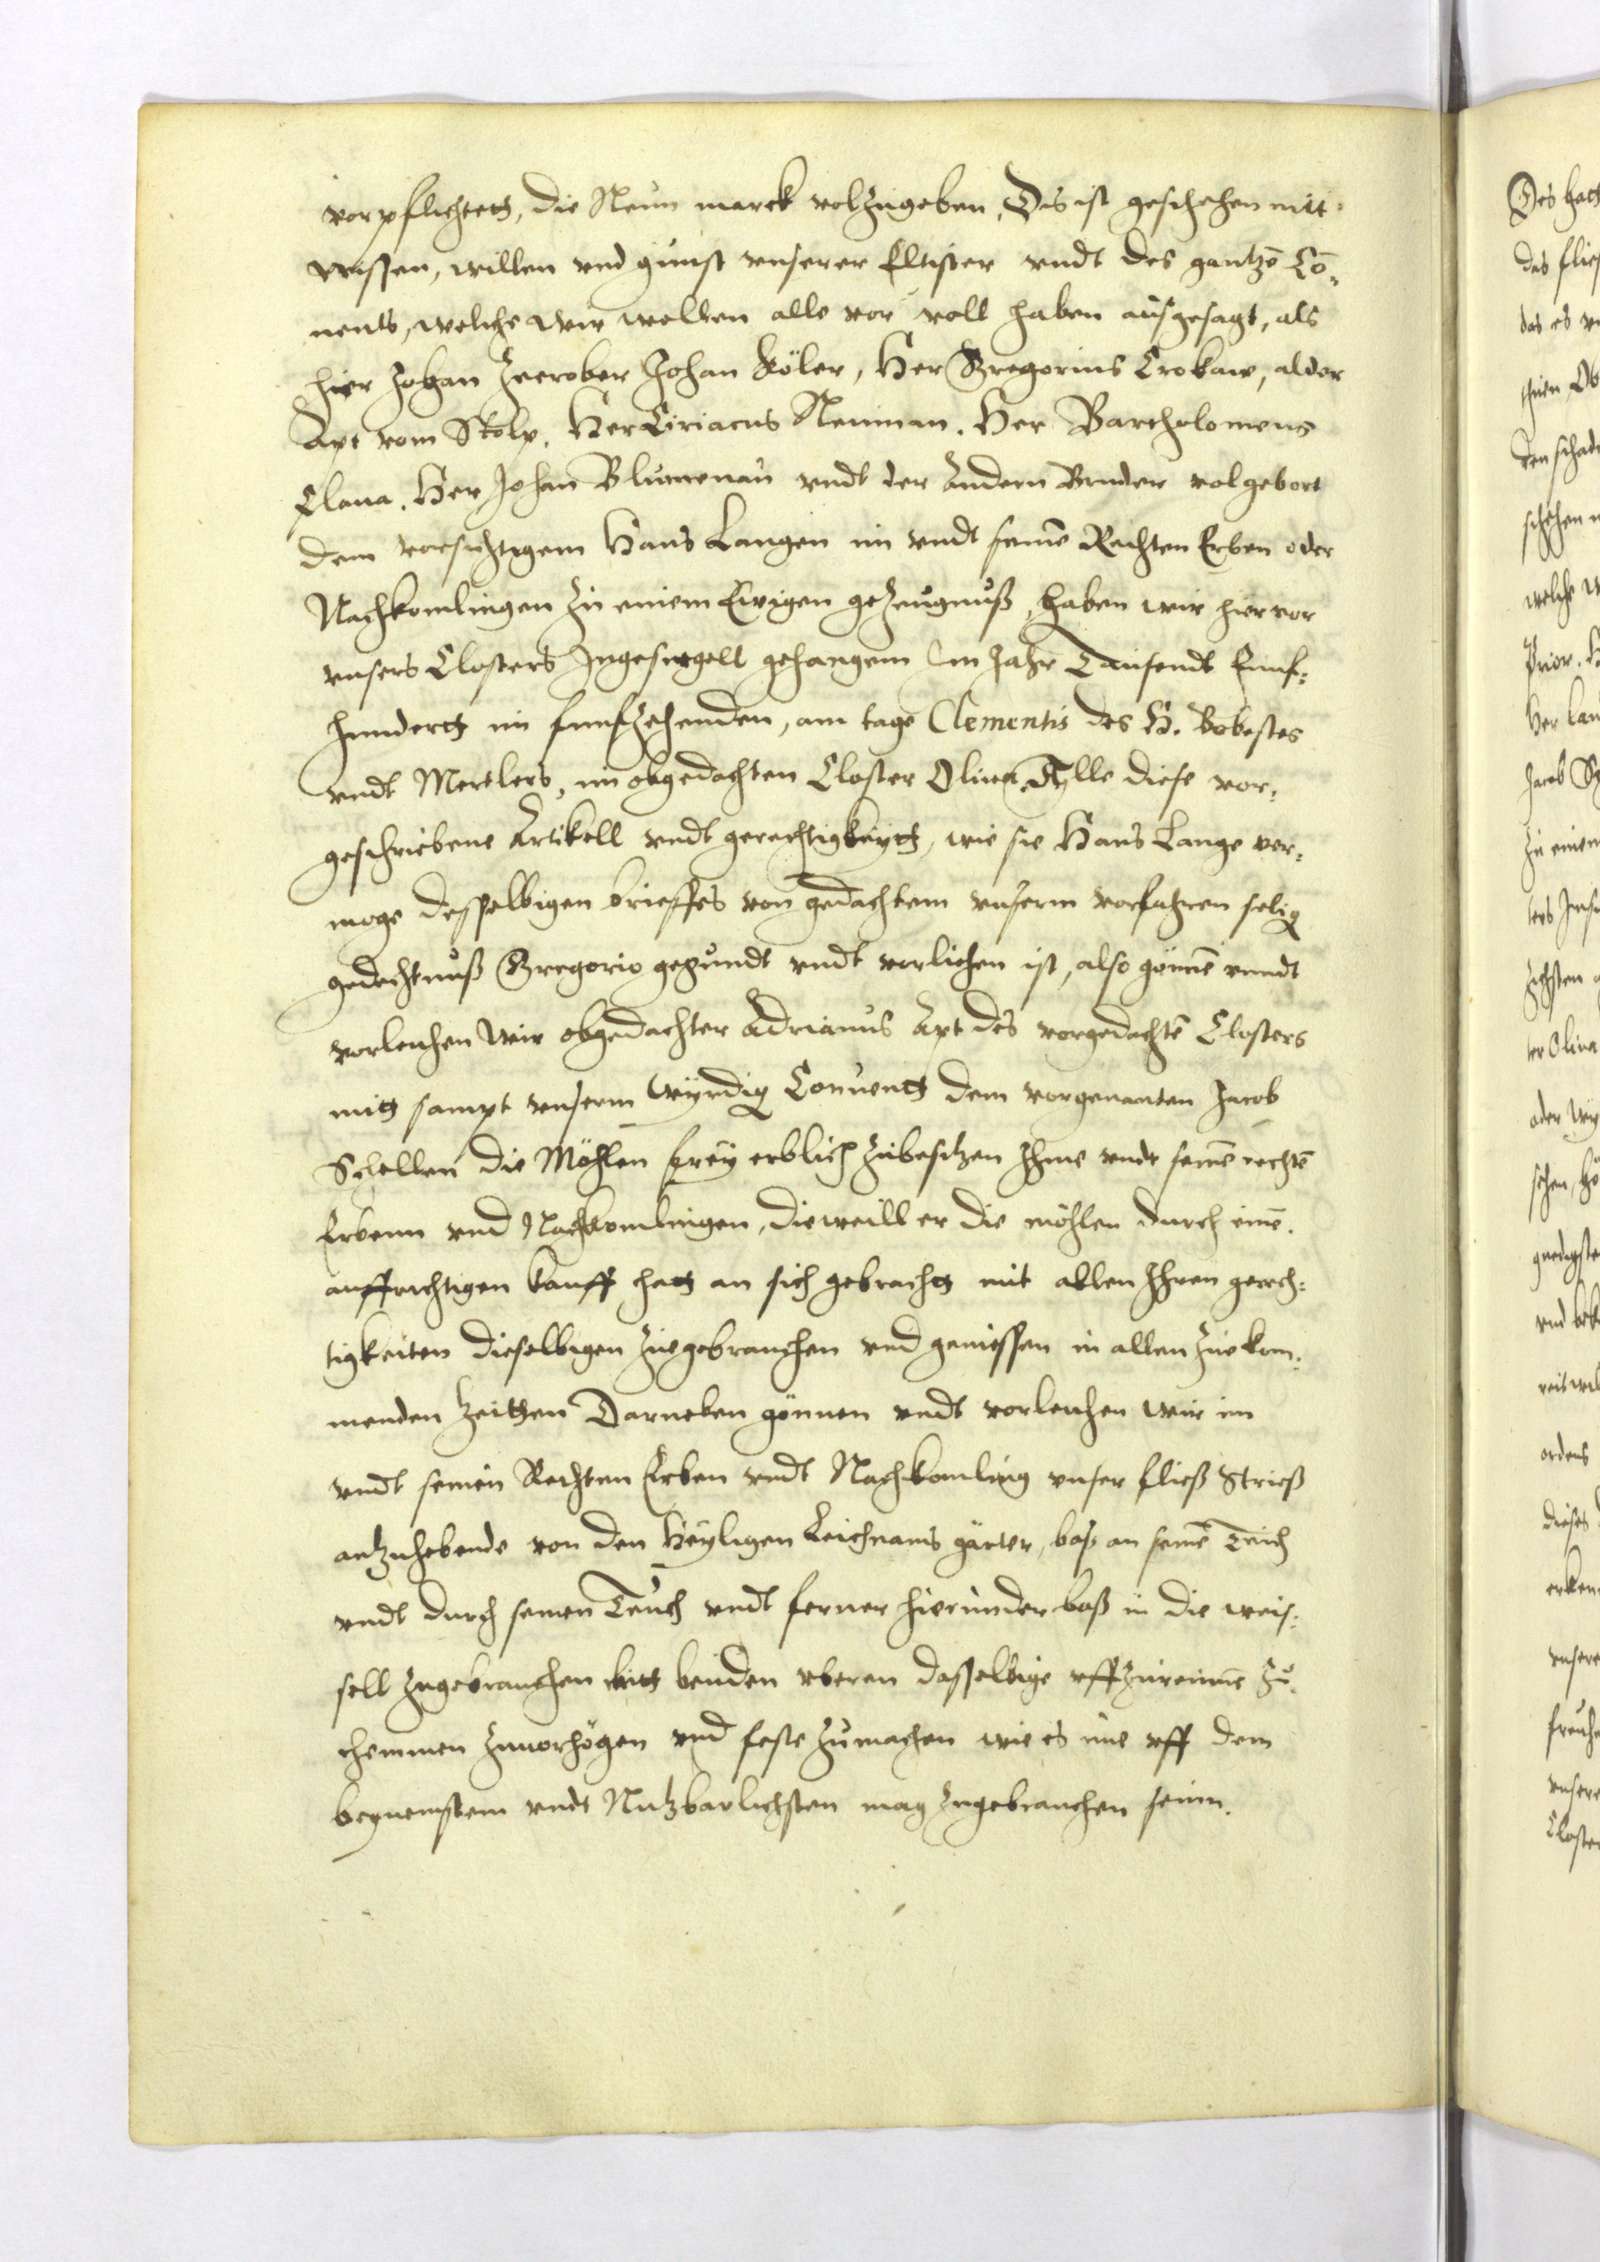 vorpflichtett, die Neun marck volzugeben, Dis ist geschehen mit
wissen, willen vnd gunst vnserer Eltister vndt des gantzē Cō¬
uents, welche wir wollen alle vor voll haben ausgesagt, als
Her Johan Johan Köler, Her Gregorius Crokaw, alder
Apt vom Stolp. Her Ciriacus Neuman. Her Bartholomeus
Her Johan Blumenau vndt der andern Bruder volgebort
dem vorsichtigem Hans Langen im vndt seinē Rechten Erben oder
Nachkomlingen zu einem Ewigen gezeugnuß, haben wir hiervor
vnsers Closters Ingesiegell gehangem Im Jahr Tausendt Funf¬
hundertt im funfzehenden, am tage Clementis des H. Bobestes
vndt Mertlers, im obgedachten Closter Oliua, Alle diese vor¬
geschriebene Artikell vndt gerechtigkeytt, wie sie Hans Lange ver¬
moge desselbigen brieffes von gedachtem vnserm vorfahren selig
gedechtnuß Gregorio gegundt vndt vorliehen ist, also gönnē vnndt
vorleihen wir obgedachter Adrianus Apt des vorgedachtē Closters
mitt sampt vnserm wyrdig Conuentt dem vorgenanten Jacob
Schellen die Möhlen frey erblich zubesitzen Ihme vndt seinē rechtē
Erbenn vnd Nachkomlingen, dieweill er die möhlen durch einē
auffrichtigen kauff hatt an sich gebracht mit allen Ihren gerech¬
tigkeiten dieselbigen zuegebrauchen vnd geniessen in allen zuekom¬
menden Zeitten Darneben gönnen vndt vorleihen wir im
vndt seinen Rechten Erben vndt Nachkomling vnser fließ Strieß
antzuhebende von den Heyligen Leichnams gärten, baß an seinē Teich
vndt durch seinen Teich vndt ferner hierunder baß in die weis¬
sell zugebrauchen beiden vberen dasselbige vffzureumē zu
themmen zuuorhögen vnd feste zumachen wie es ime vff dem
bequemstem vndt Nutzbarlichsten mag zugebrauchen seinn.